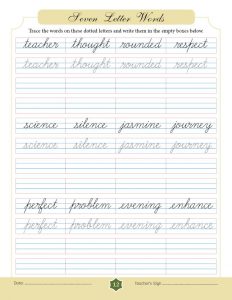 Seven Letter Words
Trace the words on these dotted letters and write them in the empty boxes below.
teacher thought rounded respect
teacher thought rounded respect
science silence jasmine journey
science silence jasmine journey
perfect problem evening enhance
perfect problem evening enhance
Date: 12 Teacher's Sign